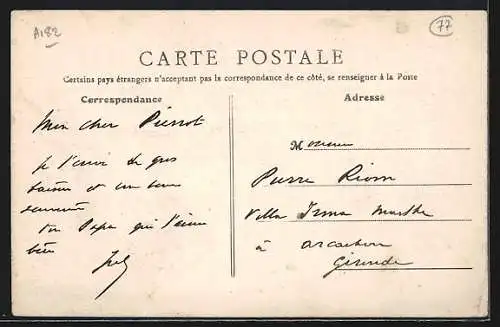 A182
77
CARTE POSTALE
Certains pays étrangers n'acceptant pas la correspondance de ce côté, se renseigner à la Poste
Correspondance
Mon cher Pierrot
je t'envoie de gros
baisers et un bon
ton Papa qui t'aime
bien
Adresse
Monsieur
Pierre Riom
Villa Irma Marthe
à Arcachon
Gironde